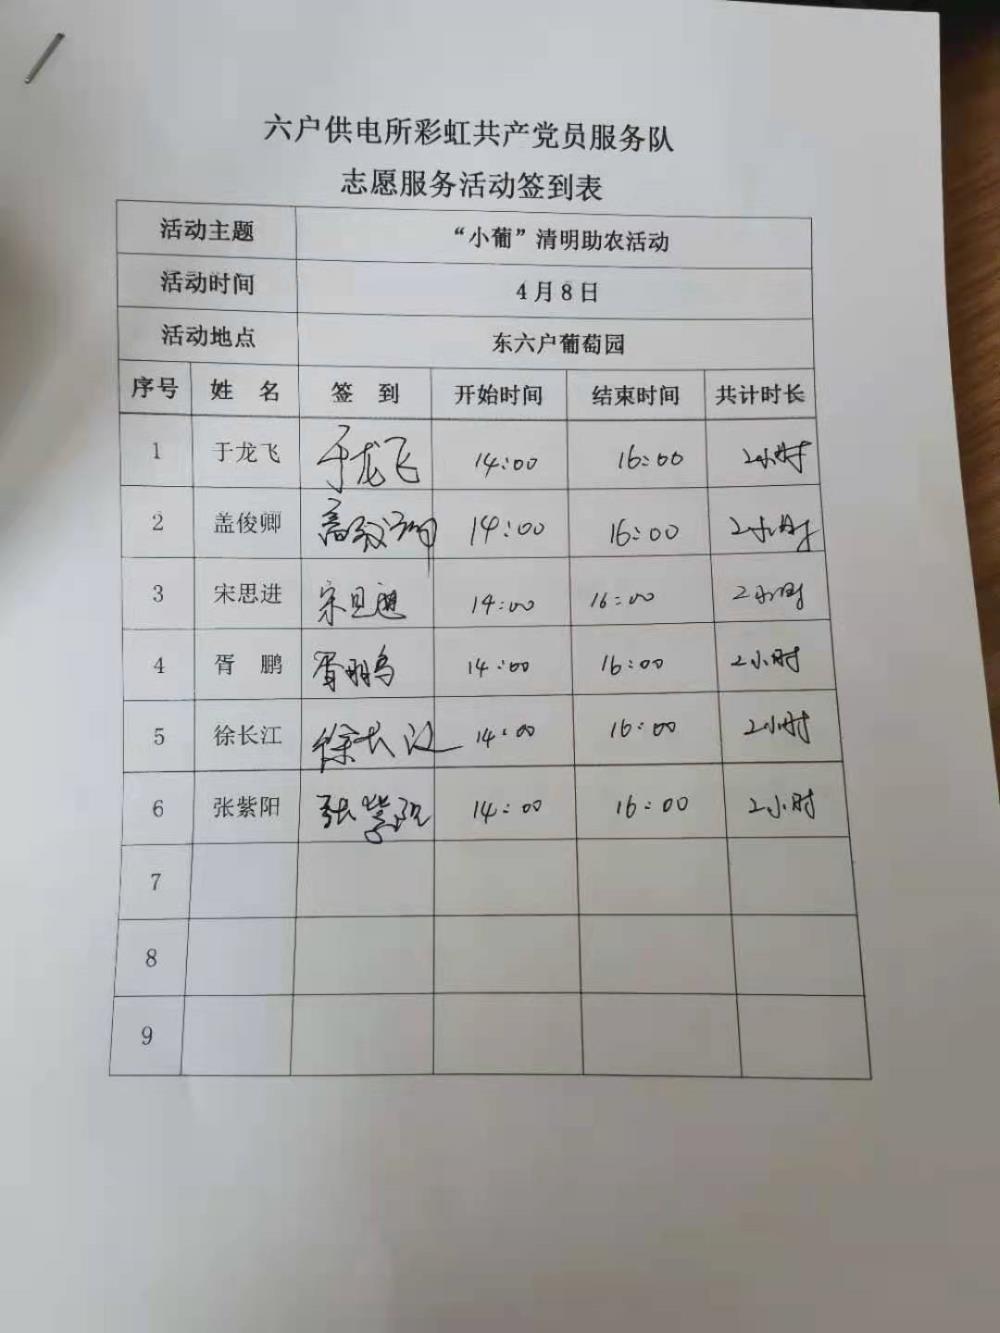 六户供电所彩虹共产党员服务队
志愿服务活动签到表
活动主题 “小葡”清明助农活动
活动时间 4月8日
活动地点 东六户葡萄园
序号 姓 名 签 到 开始时间 结束时间 共计时长
1 于龙飞 于龙飞 14:00 16:00 2小时
2 盖俊卿 14:00 16:00 2小时
3 宋思进 14:00 16:00 2小时
4 胥 鹏 胥鹏 14:00 16:00 2小时
5 徐长江 徐长江 14:00 16:00 2小时
6 张紫阳 张紫阳 14:00 16:00 2小时
7
8
9